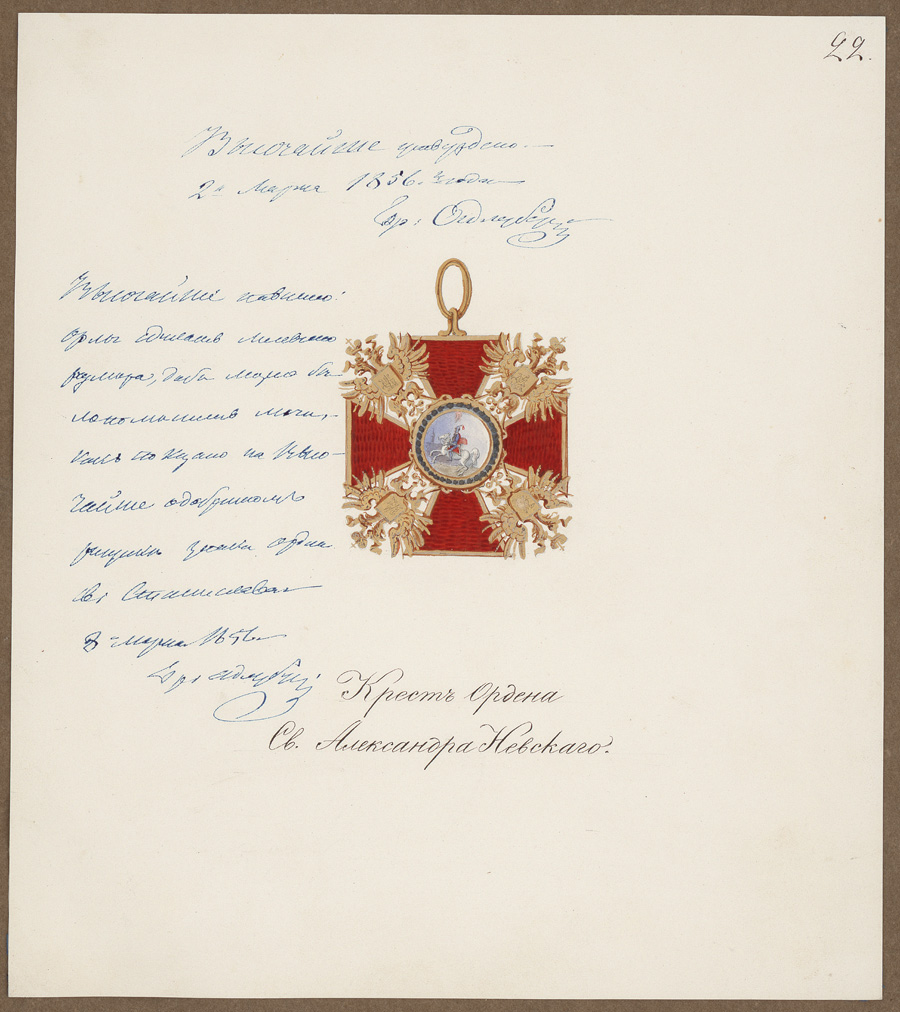 22.
Высочайше утверждено.
2го Марта 1856. года
Гр: Адлерберг
Высочайше повелено:
орлы сделать меньшаго
размера, дабы можно бы-
ло помещать мечи,
какъ показано на Высо-
чайше одобренномъ
рисунке знака ордена
Св: Станислава
Марта 1856
Гр: Адлерберг
Крестъ Ордена
Св. Александра Невскаго.